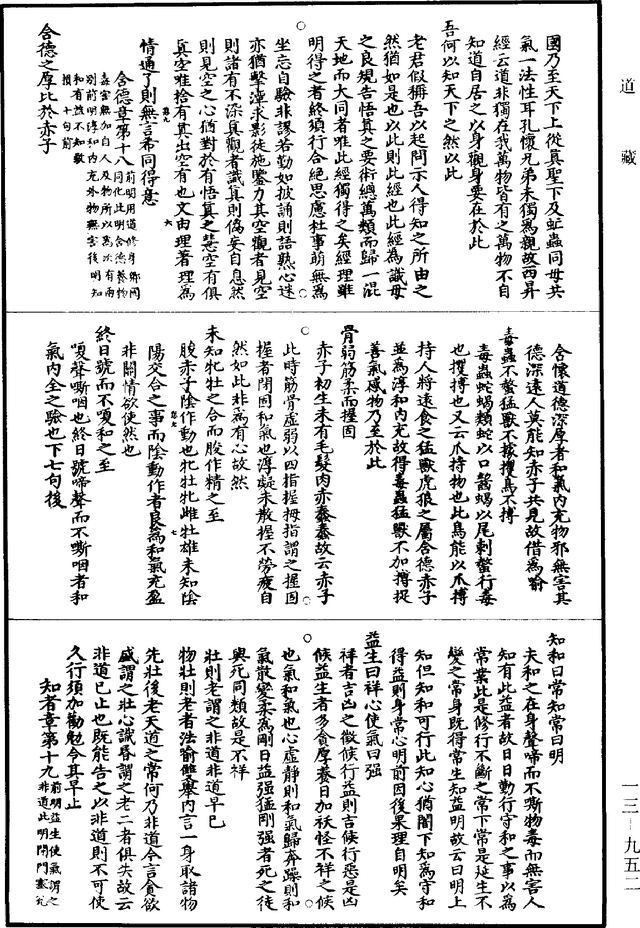 道藏
國乃至天下上從真聖下及虻蟲同毋共
氣一法性耳孔懷兄弟未獨爲親故西昇
經云道非獨在我萬物皆有之萬物不自
知道自居之以身觀身要在於此
吾何以知天下之然以此
老君假稱吾以起問示人得知之所由之
然猶如是也以此則此經也此經爲識母
之良規告悟真之要術總萬類而歸一混
天地而大同者唯此經獨得之矣經理雖
明得之者終須行合絕思慮杜事萌無爲
坐忘自驗非謬若勤如披誦則語熟心迷
亦猶擊漳求影徒施鑒力其空觀者見空
則諸有不深真觀者識真則僞妄自息然
則見空之心猶對於有悟真之慧空有俱
真空唯捨有真出空有也文由理著理爲
情通了則無言希同得意
合德章第十八
前明用道修身鄉國
同化此明合德養物
毒害無加自人及物所以爲次有兩
別前明淳和內充外物無害後明知
和有益不知數
損十句前
合德之厚比於赤子
含懷道德深厚者和氣內充物邪無害其
德深遠人莫能知赤子共見故借爲喻
毒蟲不螫猛獸不據攫鳥不搏
毒蟲蛇蝎類蛇以口齧蝎以尾刺螫行毒
也攫搏也又云爪持物也此鳥能以爪搏
持人將遠食之猛獸虎狼之屬含德赤子
並爲淳和內充故得毒蟲猛獸不加搏捉
善氣感物乃至於此
骨弱筋柔而握固
赤子初生未有毛髮肉亦蠢蠢故云赤子
此時筋骨虛弱以四指握拇指謂之握固
握者閉固和氣也淳凝未散握不勞疲自
然如此非爲有心故然
未知牝牡之合而朘作精之至
朘赤子陰作動也牝牡雌雄未知陰
陽交合之事而陰動作者良爲和氣充盈
非關情欲使然也
終日號而不嗄和之至
嗄聲嘶咽也終日號啼聲而不嘶咽者和
氣內全之驗也下七句後
知和曰常知常曰明
夫和之在身聲啼而不嘶物毒而無害人
知有此益者故日日勤行守和之事以爲
常業此是修行不斷之常下常是延生不
變之常身既得常生知益明故云日明上
知但知和可行此知心猶闇下知爲守和
得益則身常心明前因後果理自明矣
益生曰祥心使氣曰強
祥者吉凶之徵候行益則吉候行惡是凶
候益生者多貪厚養日加祅怪不祥之候
也氣和氣也心虛靜則和氣歸奔躁則和
氣散變柔爲剛日益強猛剛強者死之徒
與死同類故是不祥
壯則老謂之非道非道早已
物壯則老者法喻雙舉內言一身取諸物
先壯後老天道之常何乃非道今言貪欲
盛謂之壯心識昏謂之老二者俱失故云
非道已止也既能告之以非道則不可使
久行須加勸勉令其早止
知者章第十九
前明益生使氣謂之
非道此明閉門塞兌
一三—九五二